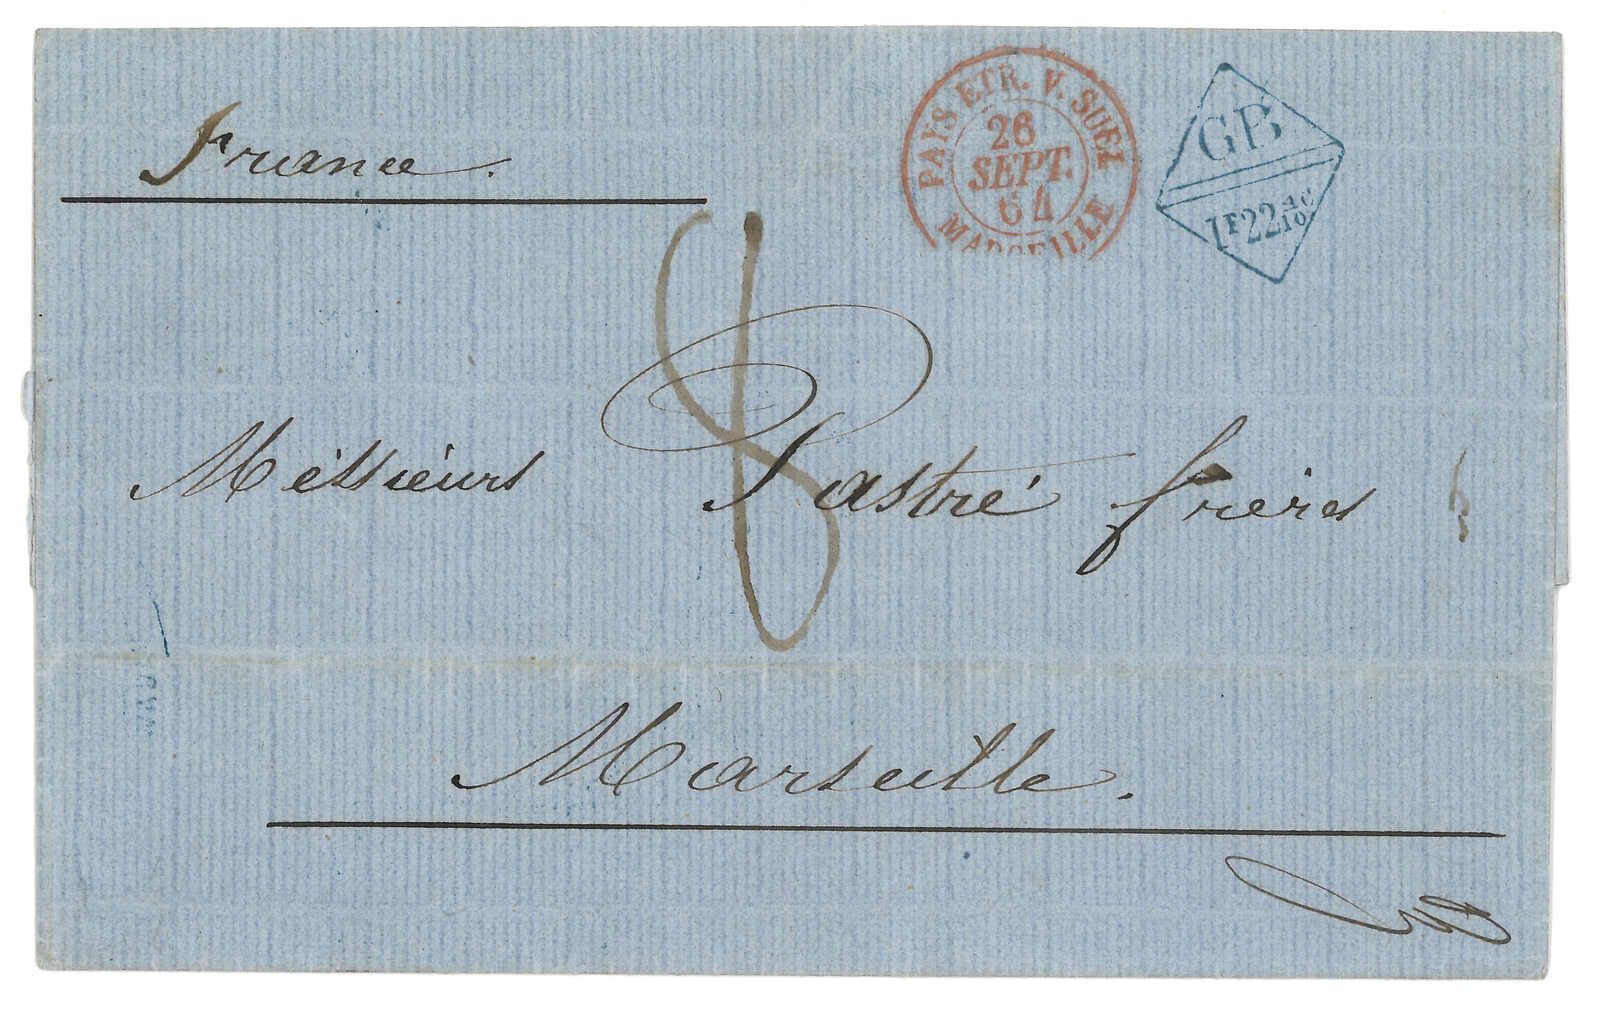 France.
PAYS ETR. V. SUEZ
26
SEPT.
64
MARSEILLE
GB
1F22 4c/10
8
Messieurs Pastré frères
Marseille.